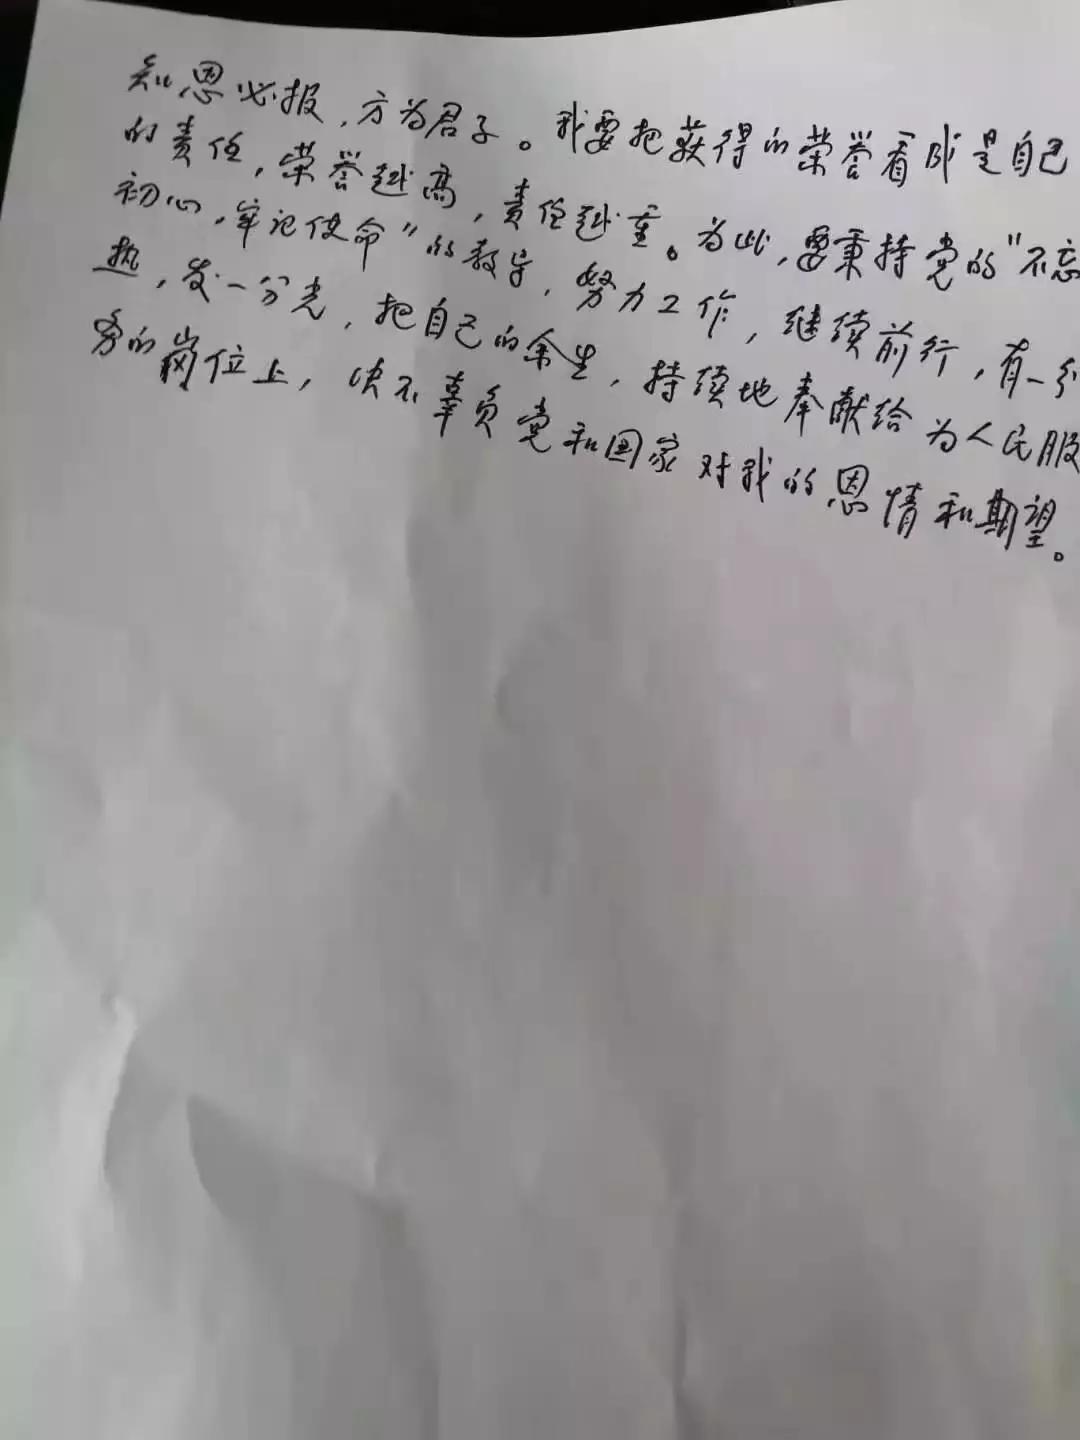 知恩必报，方为君子。我要把获得的荣誉看成是自己
的责任，荣誉越高，责任越重。为此，要秉持党的“不忘
初心，牢记使命”的教导，努力工作，继续前行，有一分
热，发一分光，把自己的余生，持续地奉献给为人民服
务的岗位上，决不辜负党和国家对我的恩情和期望。